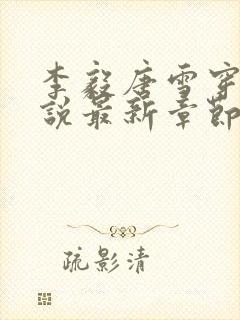 李毅唐雪穿
說最新章節
疏影清